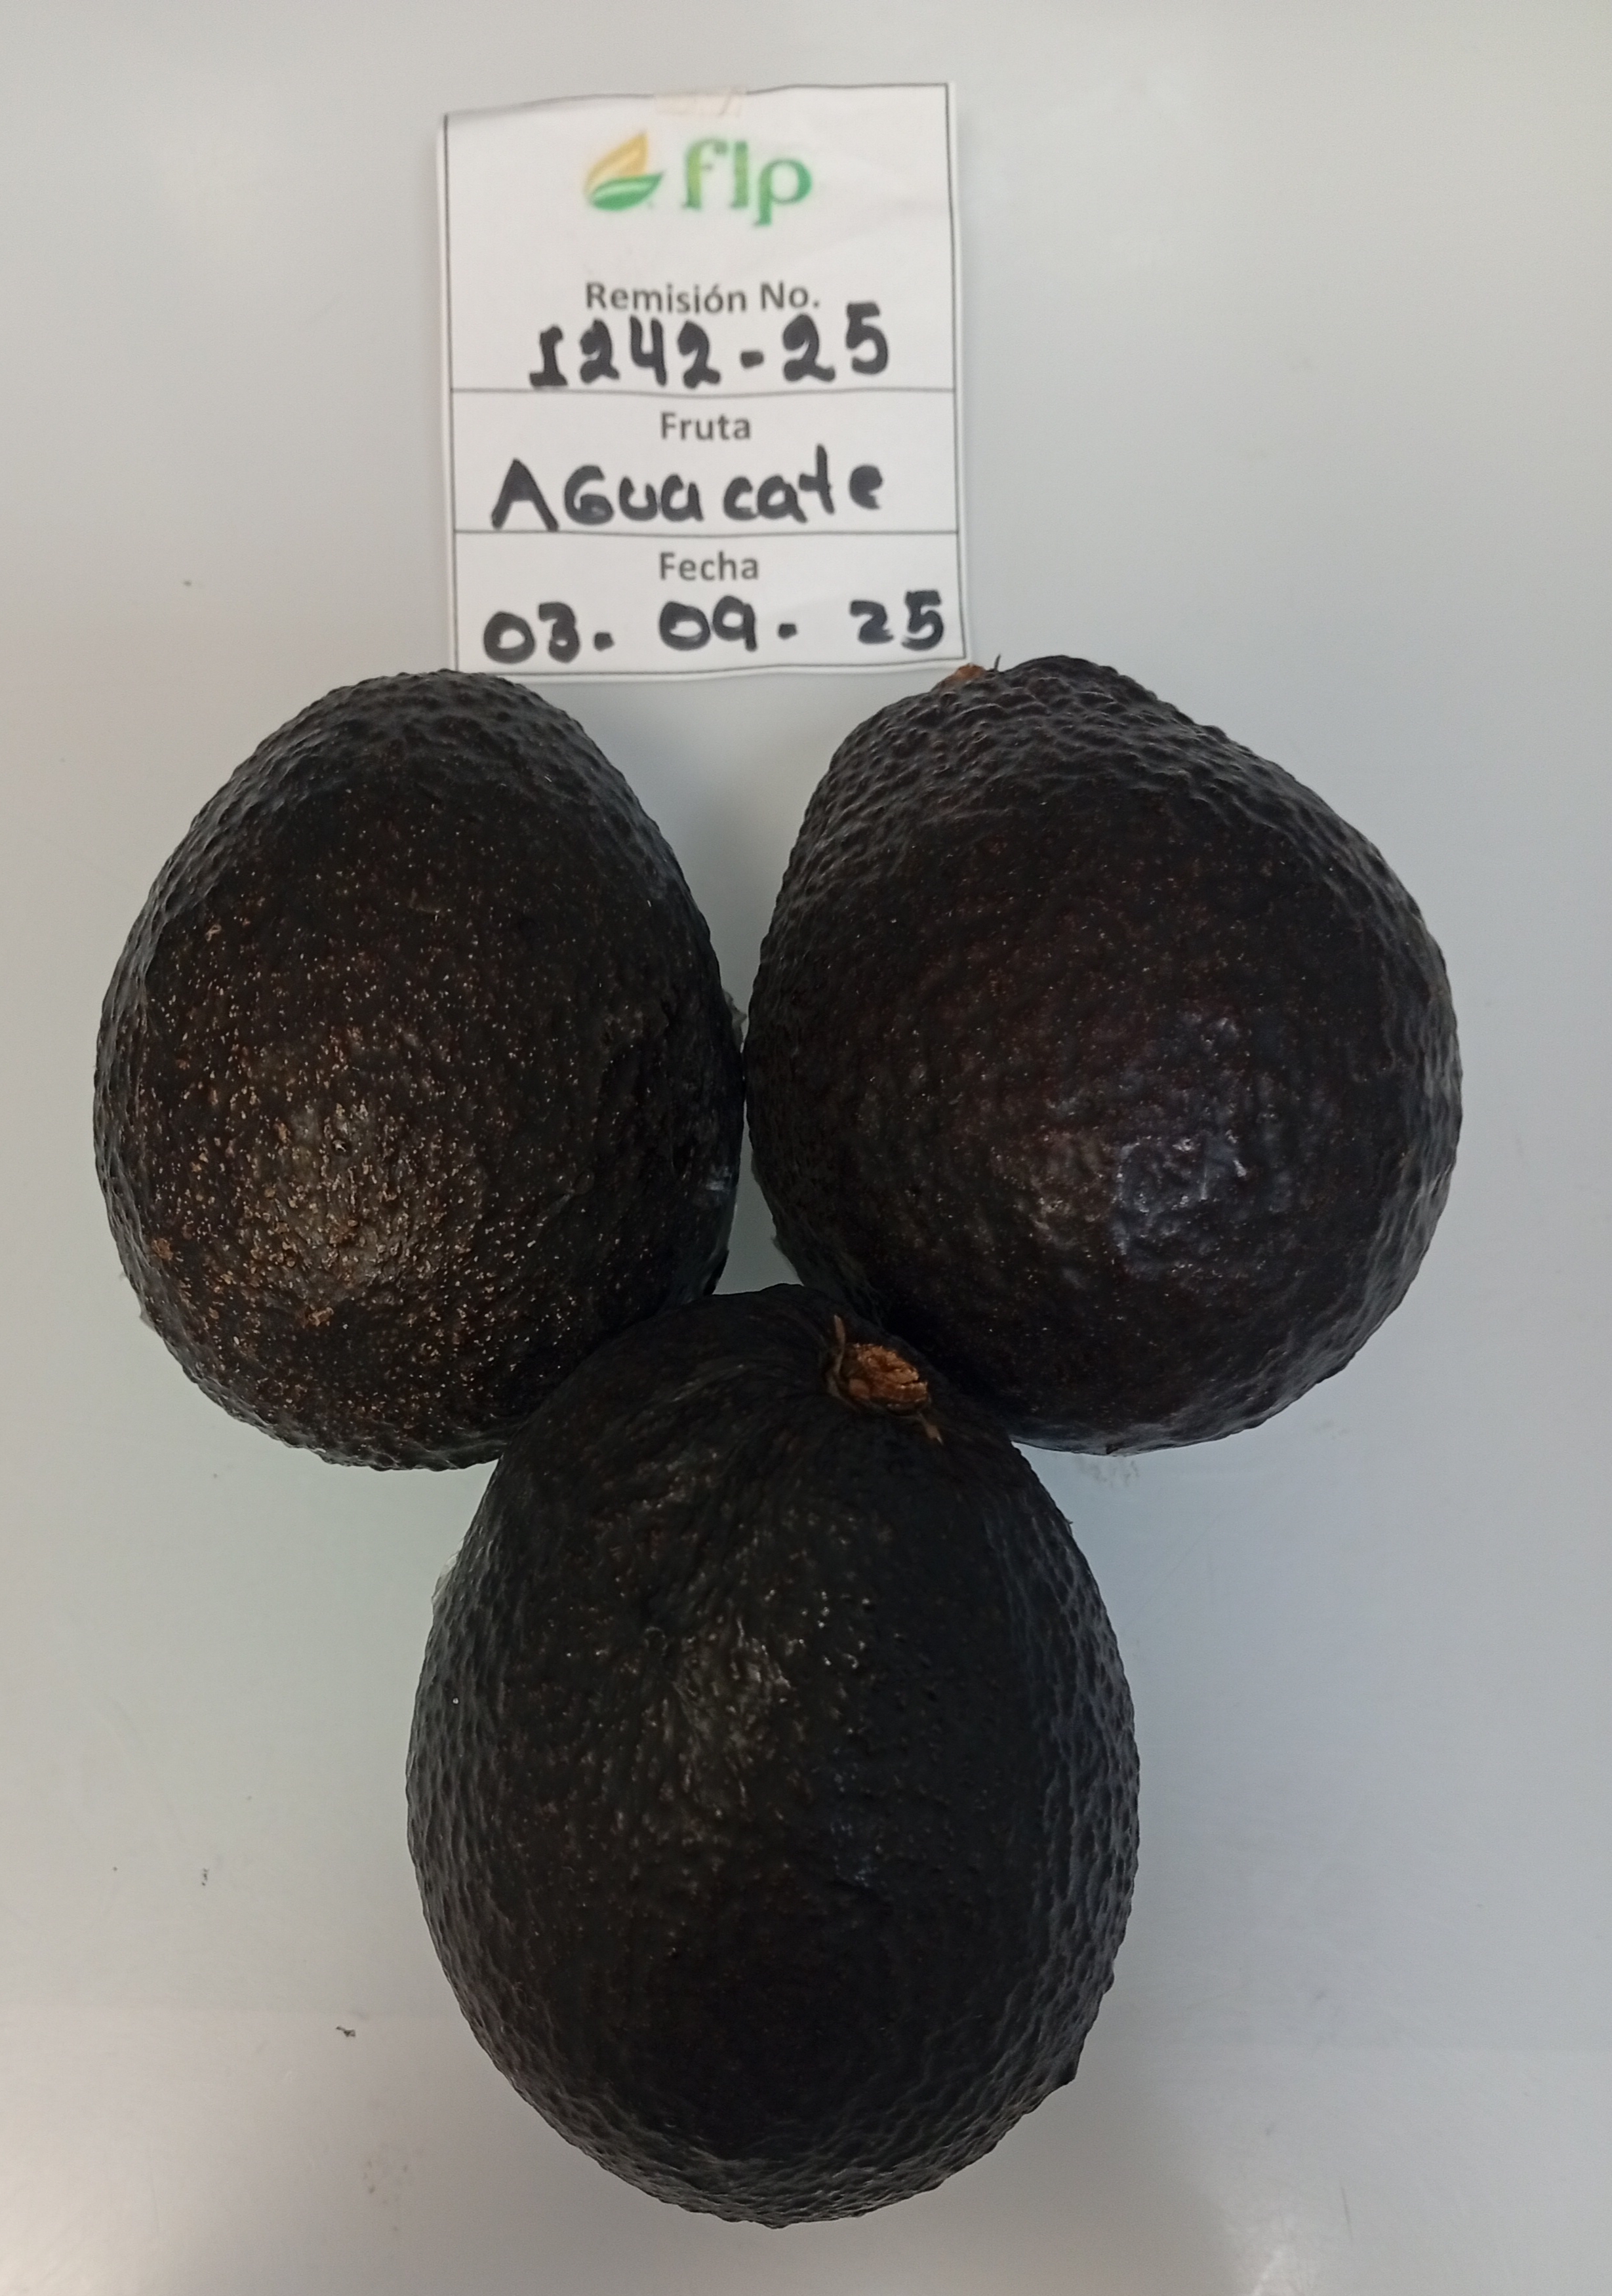 flp
Remisión No.
1242-25
Fruta
AGuacate
Fecha
03. 09. 25